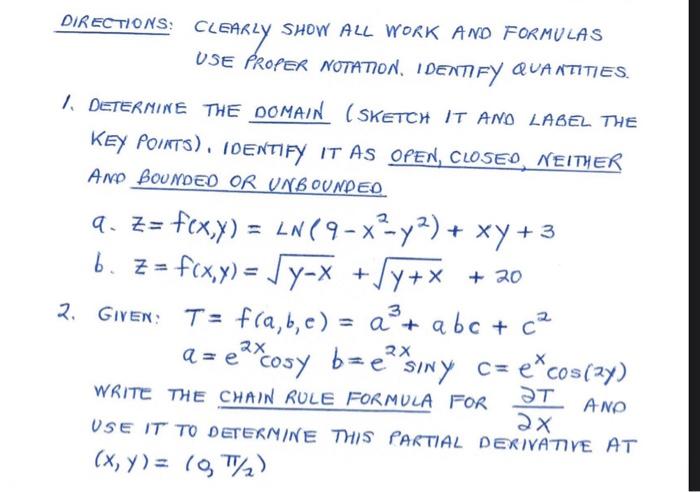 DIRECTIONS: CLEARLY SHOW ALL WORK AND FORMULAS
USE PROPER NOTATION. IDENTIFY QUANTITIES.
1. DETERMINE THE DOMAIN (SKETCH IT AND LABEL THE
KEY POINTS). IDENTIFY IT AS OPEN, CLOSED, NEITHER
AND BOUNDED OR UNBOUNDED
a. z = f(x,y) = LN(9-x²-y²) + xy + 3
b. z = f(x,y) = √y-x + √y+x + 20
2. GIVEN: T = f(a,b,c) = a³ + abc + c²
a = e²ˣcosy b = e²ˣsiny c = eˣcos(2y)
WRITE THE CHAIN RULE FORMULA FOR ∂T/∂x AND
USE IT TO DETERMINE THIS PARTIAL DERIVATIVE AT
(x,y) = (0, π/2)